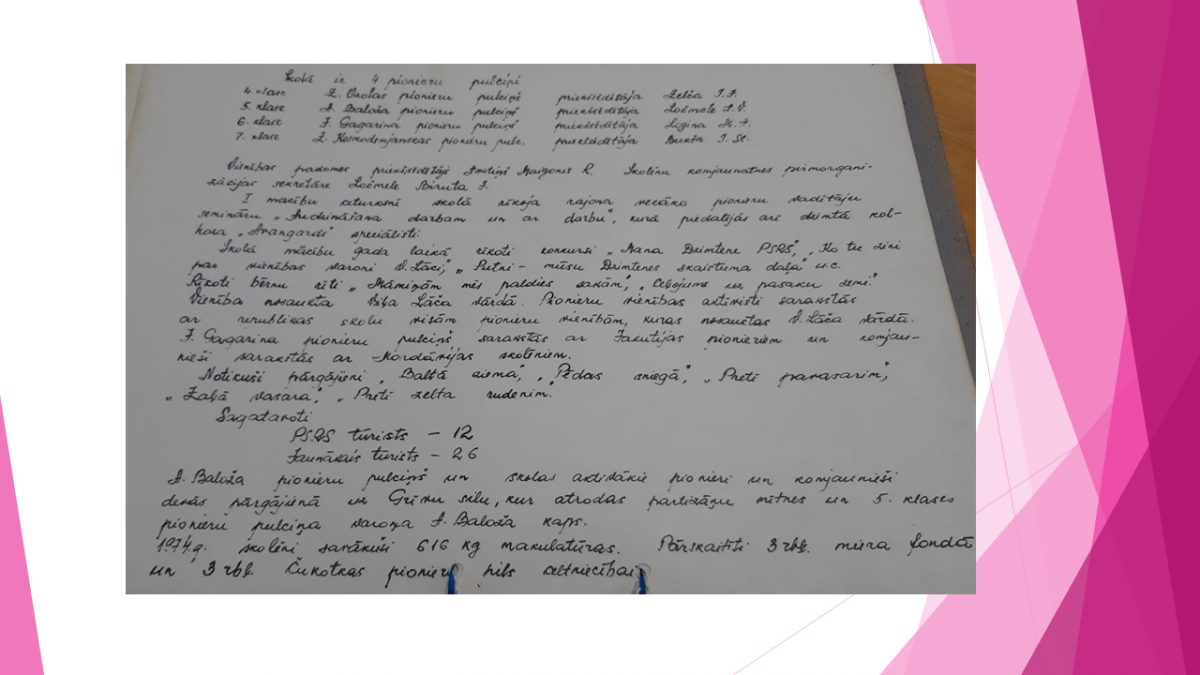 Skolā ir 4 pionieru pulciņi
4. klase Z. pionieru pulciņš priekšsēdētāja Zelča I. J.
5. klase A. Baloža pionieru pulciņš priekšsēdētāja Ločmele A. V.
6. klase J. Gagarina pionieru pulciņš priekšsēdētāja Logina M. A.
7. klase Z. Kosmodemjanskas pionieru pulc. priekšsēdētāja Bukta I. St.
Vienības padomes priekšsēdētāji Margonis R. Skolēnu komjaunatnes pirmorgani-
zācijas sekretāre Ločmele Biruta J.
I mācību ceturksnī skolā rīkoja rajona vecāko pionieru vadītāju
semināru „Audzināšana darbam un ar darbu", kurā piedalījās arī dzimtā kol-
hoza „Avangards" speciālisti.
Skolā mācību gada laikā rīkoti konkursi „Mana Dzimtene PSRS", „Ko tu zini
par vienības varoni V. Lāci", „Putni - mūsu Dzimtenes skaistuma daļa" u.c.
Rīkoti bērnu rīti „Māmiņām mēs paldies sakām", „Ceļojums uz pasaku zemi."
Vienība nosaukta Viļa Lāča vārdā. Pionieru vienības aktīvisti sarakstās
ar republikas skolu visām pionieru vienībām, kuras nosauktas V. Lāča vārdā.
J. Gagarina pionieru pulciņš sarakstās ar Jakutijas pionieriem un komjau-
nieši sarakstās ar skolēniem.
Notikuši pārgājieni „Baltā ziema", „Pēdas sniegā", „Pretī pavasarim",
„Zaļā vasara", „Pretī zelta rudenim."
Sagatavoti
PSRS tūrists - 12
Jaunākais tūrists - 26
A. Baloža pionieru pulciņš un skolas aktīvākie pionieri un komjaunieši
devās pārgājienā uz Grīvu silu, kur atrodas partizāņu mītnes un 5. klases
pionieru pulciņa varoņa A. Baloža kaps.
1974.g. skolēni savākuši 616 kg makulatūras. Pārskaitīti 3 rbļ. miera fondā
un 3 rbļ. Čukotkas pionieru pils celtniecībai